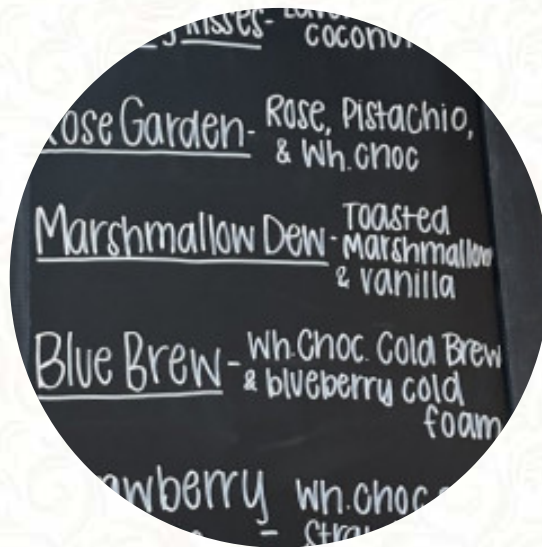 Kisses-
coconut
Rose Garden- Rose, Pistachio,
& Wh.choc
Marshmallow Dew- Toasted
Marshmallow
& vanilla
Blue Brew- Wh.Choc. Cold Brew
& blueberry cold
foam
Strawberry wh.choc
-